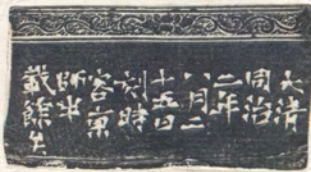 大清
同治
二年
八月二
十五日
刻時
客稟
師出
載餘矣